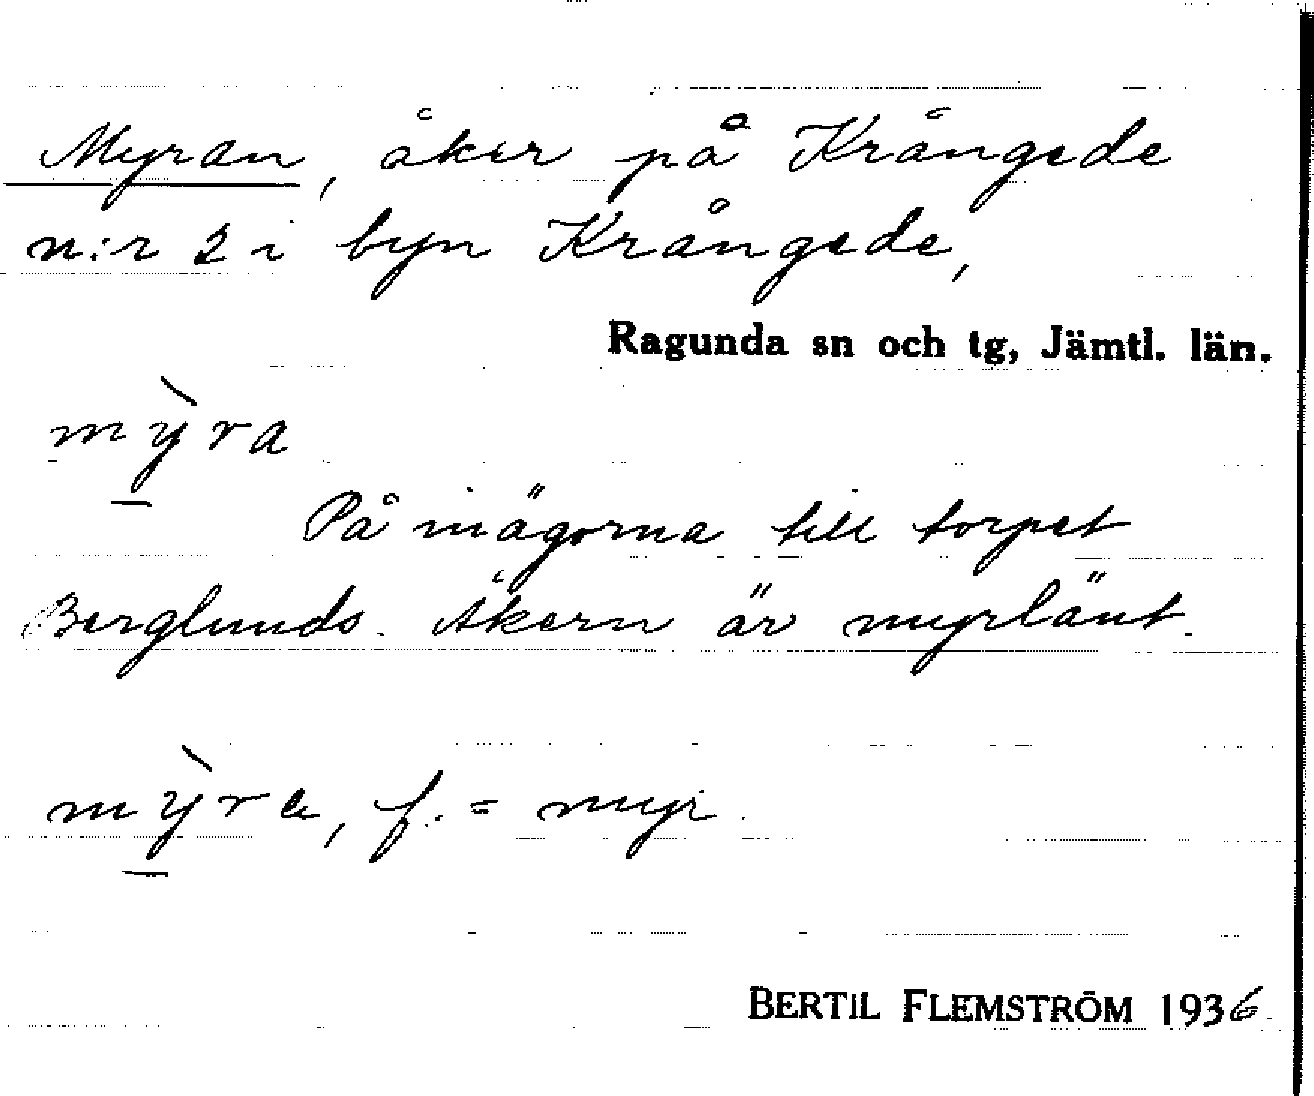 Myran, åker på Krångede
n:r 2 i byn Krångede,
Ragunda sn och tg, Jämtl. län.
mỳra
På inägorna till torpet
Berglunds. Åkern är myrlänt.
mỳra, f. = myr.
BERTIL FLEMSTRÖM 1936